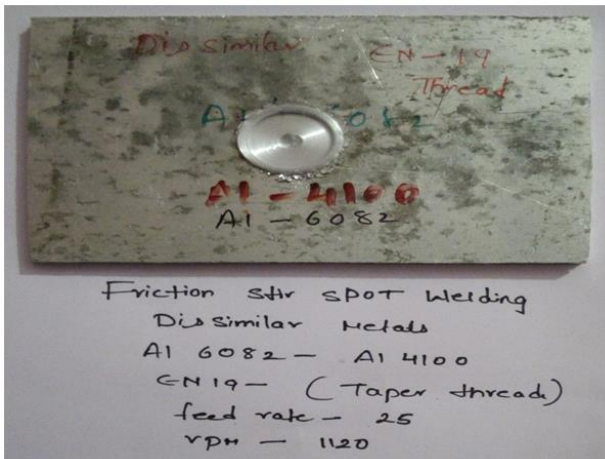 Dissimilar EN-19
Thread
Al 6082
Al-4100
Al-6082
Friction Stir SPOT Welding
Dissimilar Metals
Al 6082 - Al 4100
EN19 - (Taper thread)
feed rate - 25
rpm - 1120